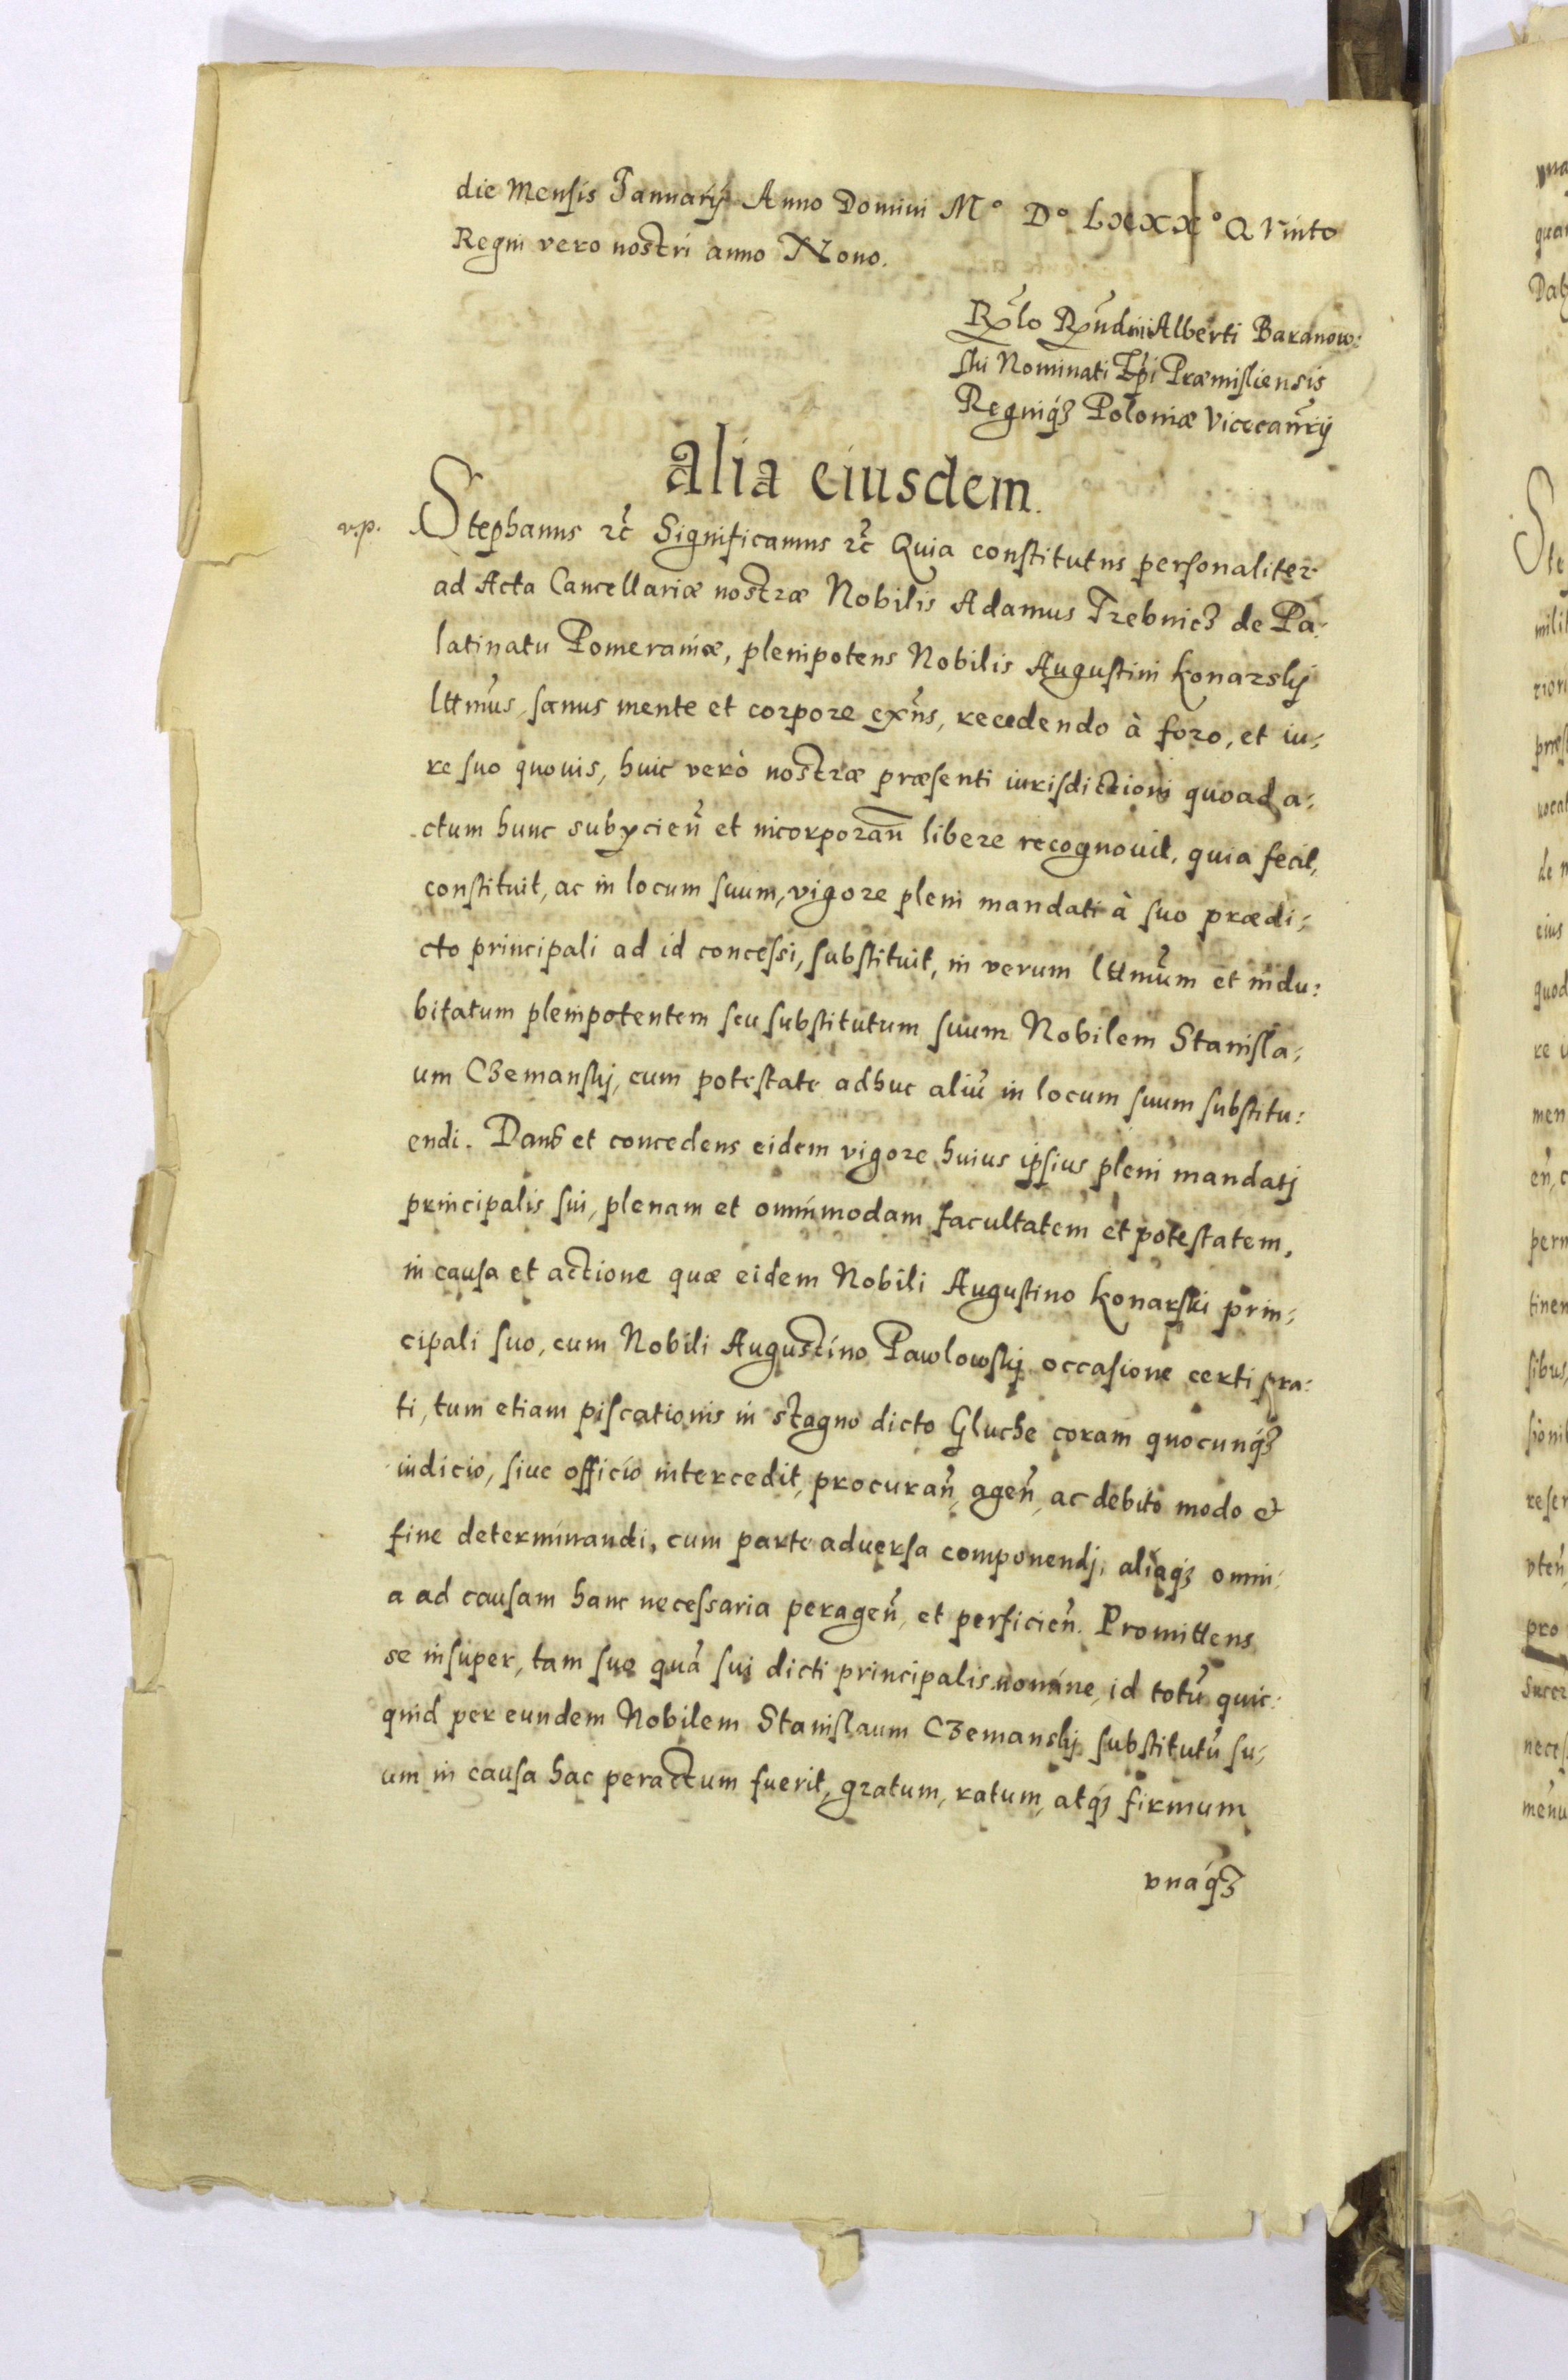 die Mensis Januarij Anno Domini M° D° LXXX° Quinto
Regni vero nostri anno Nono.
Rx̃lo Rx̃ndmi Alberti Baranow:
ski Nominati Ep̃i Præmisliensis
Regniq́ʒ Poloniæ Vicecanr̃ij
alia eiusdem.
v.p.
Stephanus ꝛc̃ Significamus ꝛc̃ Quia constitutus personaliter
ad Acta Cancellariæ nostræ Nobilis Adamus Trebnicz de Pa:
latinatu Pomeraniæ, plenipotens Nobilis Augustini Konarskj
lttmũs, sanus mente et corpore exñs, recedendo à foro, et iu:
re suo quouis, huic verò nostræ præsenti iurisdictioni quoad a:
ctum hunc subycieñ et incorporañ libere recognouit, quia fecit,
constituit, ac in locum suum, vigore pleni mandati à suo prædi:
cto principali ad id concessi, substituit, in verum lttmũm et indu:
bitatum plenipotentem seu substitutum suum Nobilem Stanisla:
um Czemanskj, cum potestate adhuc aliũ in locum suum substitu:
endi. Dans et concedens eidem vigore huius ipsius pleni mandatj
principalis sui, plenam et omnimodam facultatem et potestatem,
in causa et actione quæ eidem Nobili Augustino Konarski prin:
cipali suo, cum Nobili Augustino Pawlowskj occasione certi pra:
ti, tum etiam piscationis in stagno dicto Gluche coram quocunq́ʒ
iudicio, siue officio intercedit, procurañ, ageñ, ac debito modo et
fine determinandi, cum parte aduersa componendj, aliaq́ʒ omni:
a ad causam hanc necessaria perageñ, et perficieñ. Promittens
se insuper, tam suo quã sui dicti principalis nomine, id totũ quic:
quid per eundem Nobilem Stanislaum Czemanskj substitutũ su:
um in causa hac peractum fuerit, gratum, ratum, atq́ʒ firmum
vnaq́ʒ